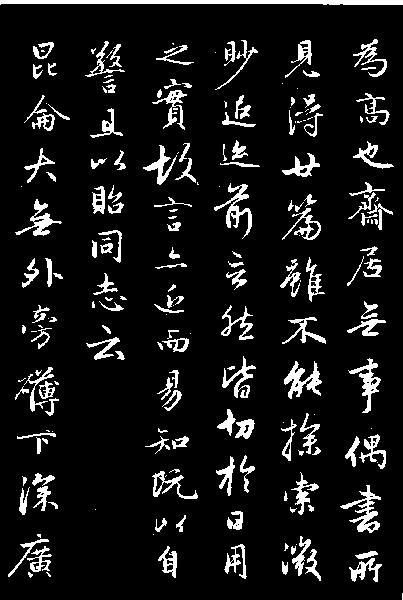 為高也齋居無事偶書所
見得廿篇雖不能探索微
眇追迹前言然皆切於日用
之實故言亦近而易知既以自
警且以貽同志云
昆侖大無外旁礴下深廣